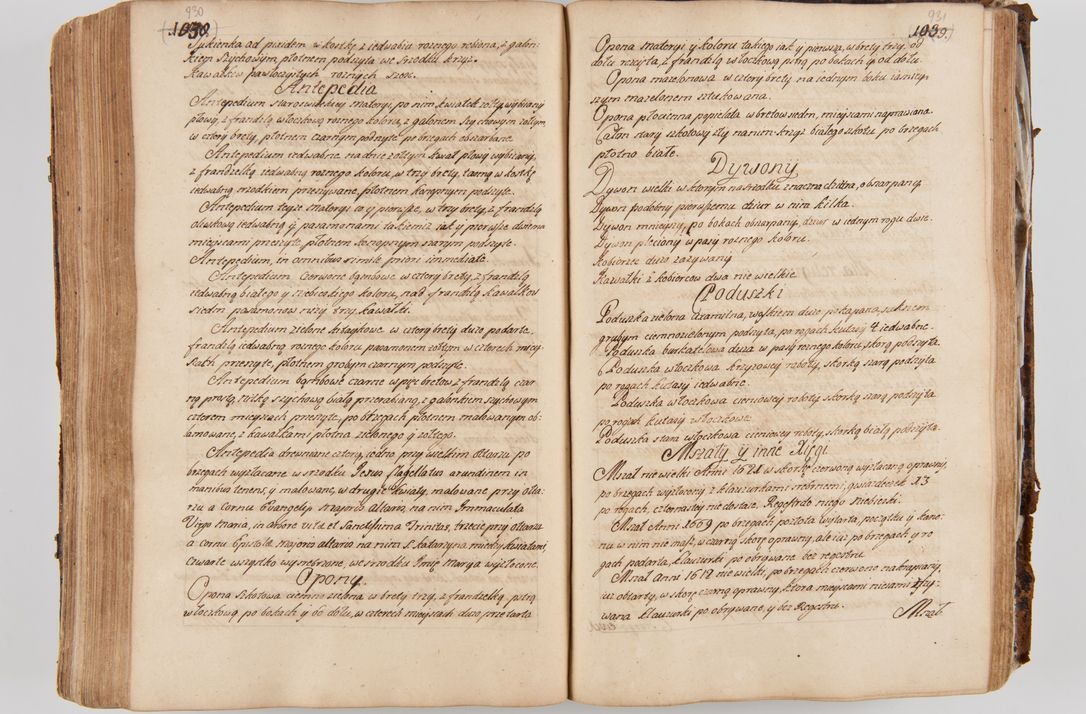 930
1038.
Sukienka ad puridem w kostkę z iedwabiu roznego robiona, z galon-
kiem szychowym, płotnem podszyta we srzodku krzyz.
Kawałkow pawłoczystych roznych szesc.
Antepedia
Antepedium staroswieckiey materyi, po nim kwiatek zołty wybiiany
płowy, z frandzlą włoczkową roznego koloru, z galonem szychowym zołtym,
w cztery brety, płotnem czarnym podszyte po brzegach obszarbane.
Antepedium iedwabne na dnie zołtym kwiat płowy wybiiany,
z frandzelką iedwabną roznego koloru, w trzy brety, tasmą w kostkę
iedwabną srzodkiem przeszywane, płotnem konopnym podszyte.
Antepedium teyze materyi co y pierwsze, w trzy brety, z frandzlą
oliwkową iedwabną y pasamonami takiemiz iak y pierwsze dwiema
mieyscami przeszyte, płotnem konopnym szarym podszyte.
Antepedium, in omnibus simile priori immediate.
Antepedium czerwone bombowe w cztery brety, z frandzlą
iedwabną białego y niebieskiego koloru, nad frandzlą kawałkow
siedm pasamonow nizy trzy kawałki.
Antepedium zielone kitaykowe w cztery brety duzo podarte,
frandzlą iedwabną roznego koloru pasamonem zołtym w czterech miey-
scach przeszyte, płotnem grobym czarnym podszyte.
Antepedium bombowe czarne w pięc bretow z frandzlą czar
ną prostą, nitką szychową białą przerabianą, z galonkiem szychowym
czterem mieyscach przeszyte, po brzegach płotnem malowanym ob-
lamowane, z kawałkami płotna zielonego y zołtego.
Antepedia drewniane cztery, iedno przy wielkim ołtarzu po
brzegach wyzłacane w srzodku Jesus flagellatus arundinem in
manibus tenens, y malowane, w drugie kwiaty, malowane przy ołta-
rzu a cornu Evangelij majoris altaris, na nim Immaculata
Virgo Maria, in arbore vitae et Sanctissima Trinitas, trzecie przy ołtarzu
a cornu Epistolae majoris altaris na nim S. Katarzyna, między kwiatami,
czwarte wszytko wysrebrzone, we srzodku Imię Marya wyzłocone.
Opony.
Opona szkotowa ciemno zielona w brety trzy, z frandzelką, pstrą
włoczkową po bokach y u dołu, w czterech mieyscach duzo przetarta
931
1039.
Opona materyi y koloru takiego iak y pierwsza, w brety trzy, od
dołu rozszyta, z frandzlą włoczkową pstrą po bokach y od dołu.
Opona mazelonowa w cztery brety na iednym boku iasniey-
szym mazelonem sztukowana.
Opona płocienna popielata w bretow siedm, mieyscami naprawiana.
Całun stary szkotowy zły na nim krzyz białego szkotu po brzegach
płotno białe.
Dywony
Dywon wielki w ktorym na srzodku znaczna dziura, obszarpany.
Dywon podobny pierwszemu dziur w nim kilka.
Dywon mnieyszy, po bokach obszarpany, dziur w iednym rogu dwie.
Dywon pleciony w pasy roznego koloru.
Kobierzec duzo zazywany
Kawałki z kobiercow dwa nie wielkie
Poduszki
Poduszka zielona axamitna, woskiem duzo pokapana, suknem
grubym ciemnozielonym podszyta, po rogach kutasy 4 iedwabne.
Poduszka burkatelowa duza w pasy roznego koloru, skorą podszyta.
Poduszka włoczkowa krzyzowey roboty, skorką szarą podszyta
po rogach kutasy iedwabne.
Poduszka włoczkowa cieniowey roboty skorką szarą podszyta
po rogach kutasy włoczkowe.
Poduszka stara włoczkowa cieniowey roboty, skorką białą podszyta.
Mszały y inne Xięgi
Mszał nie wielki Anni 1621 w skorkę czerwoną wyzłacaną oprawny,
po brzegach wyzłocony z klauzurkami srebrnemi, gwiazdeczek X3
po rogach, czternastey nie dostaie. Regestr do niego niebieski.
Mszał Anni 1609 po brzegach pozłota wytarta, początku y kano-
nu w nim nie masz, w czarną skorę oprawny, ale iuz po brzegach y ro
gach podarta, klauzurki po obrywane bez regestru.
Mszał Anni 1618 nie wielki, po brzegach czerwono nakrapiany,
iuz obtarty, w skorę czarną oprawny, ktora mieyscami niciami zszy-
wana klauzurki po obrywane, y bez Regestru.
Mszał